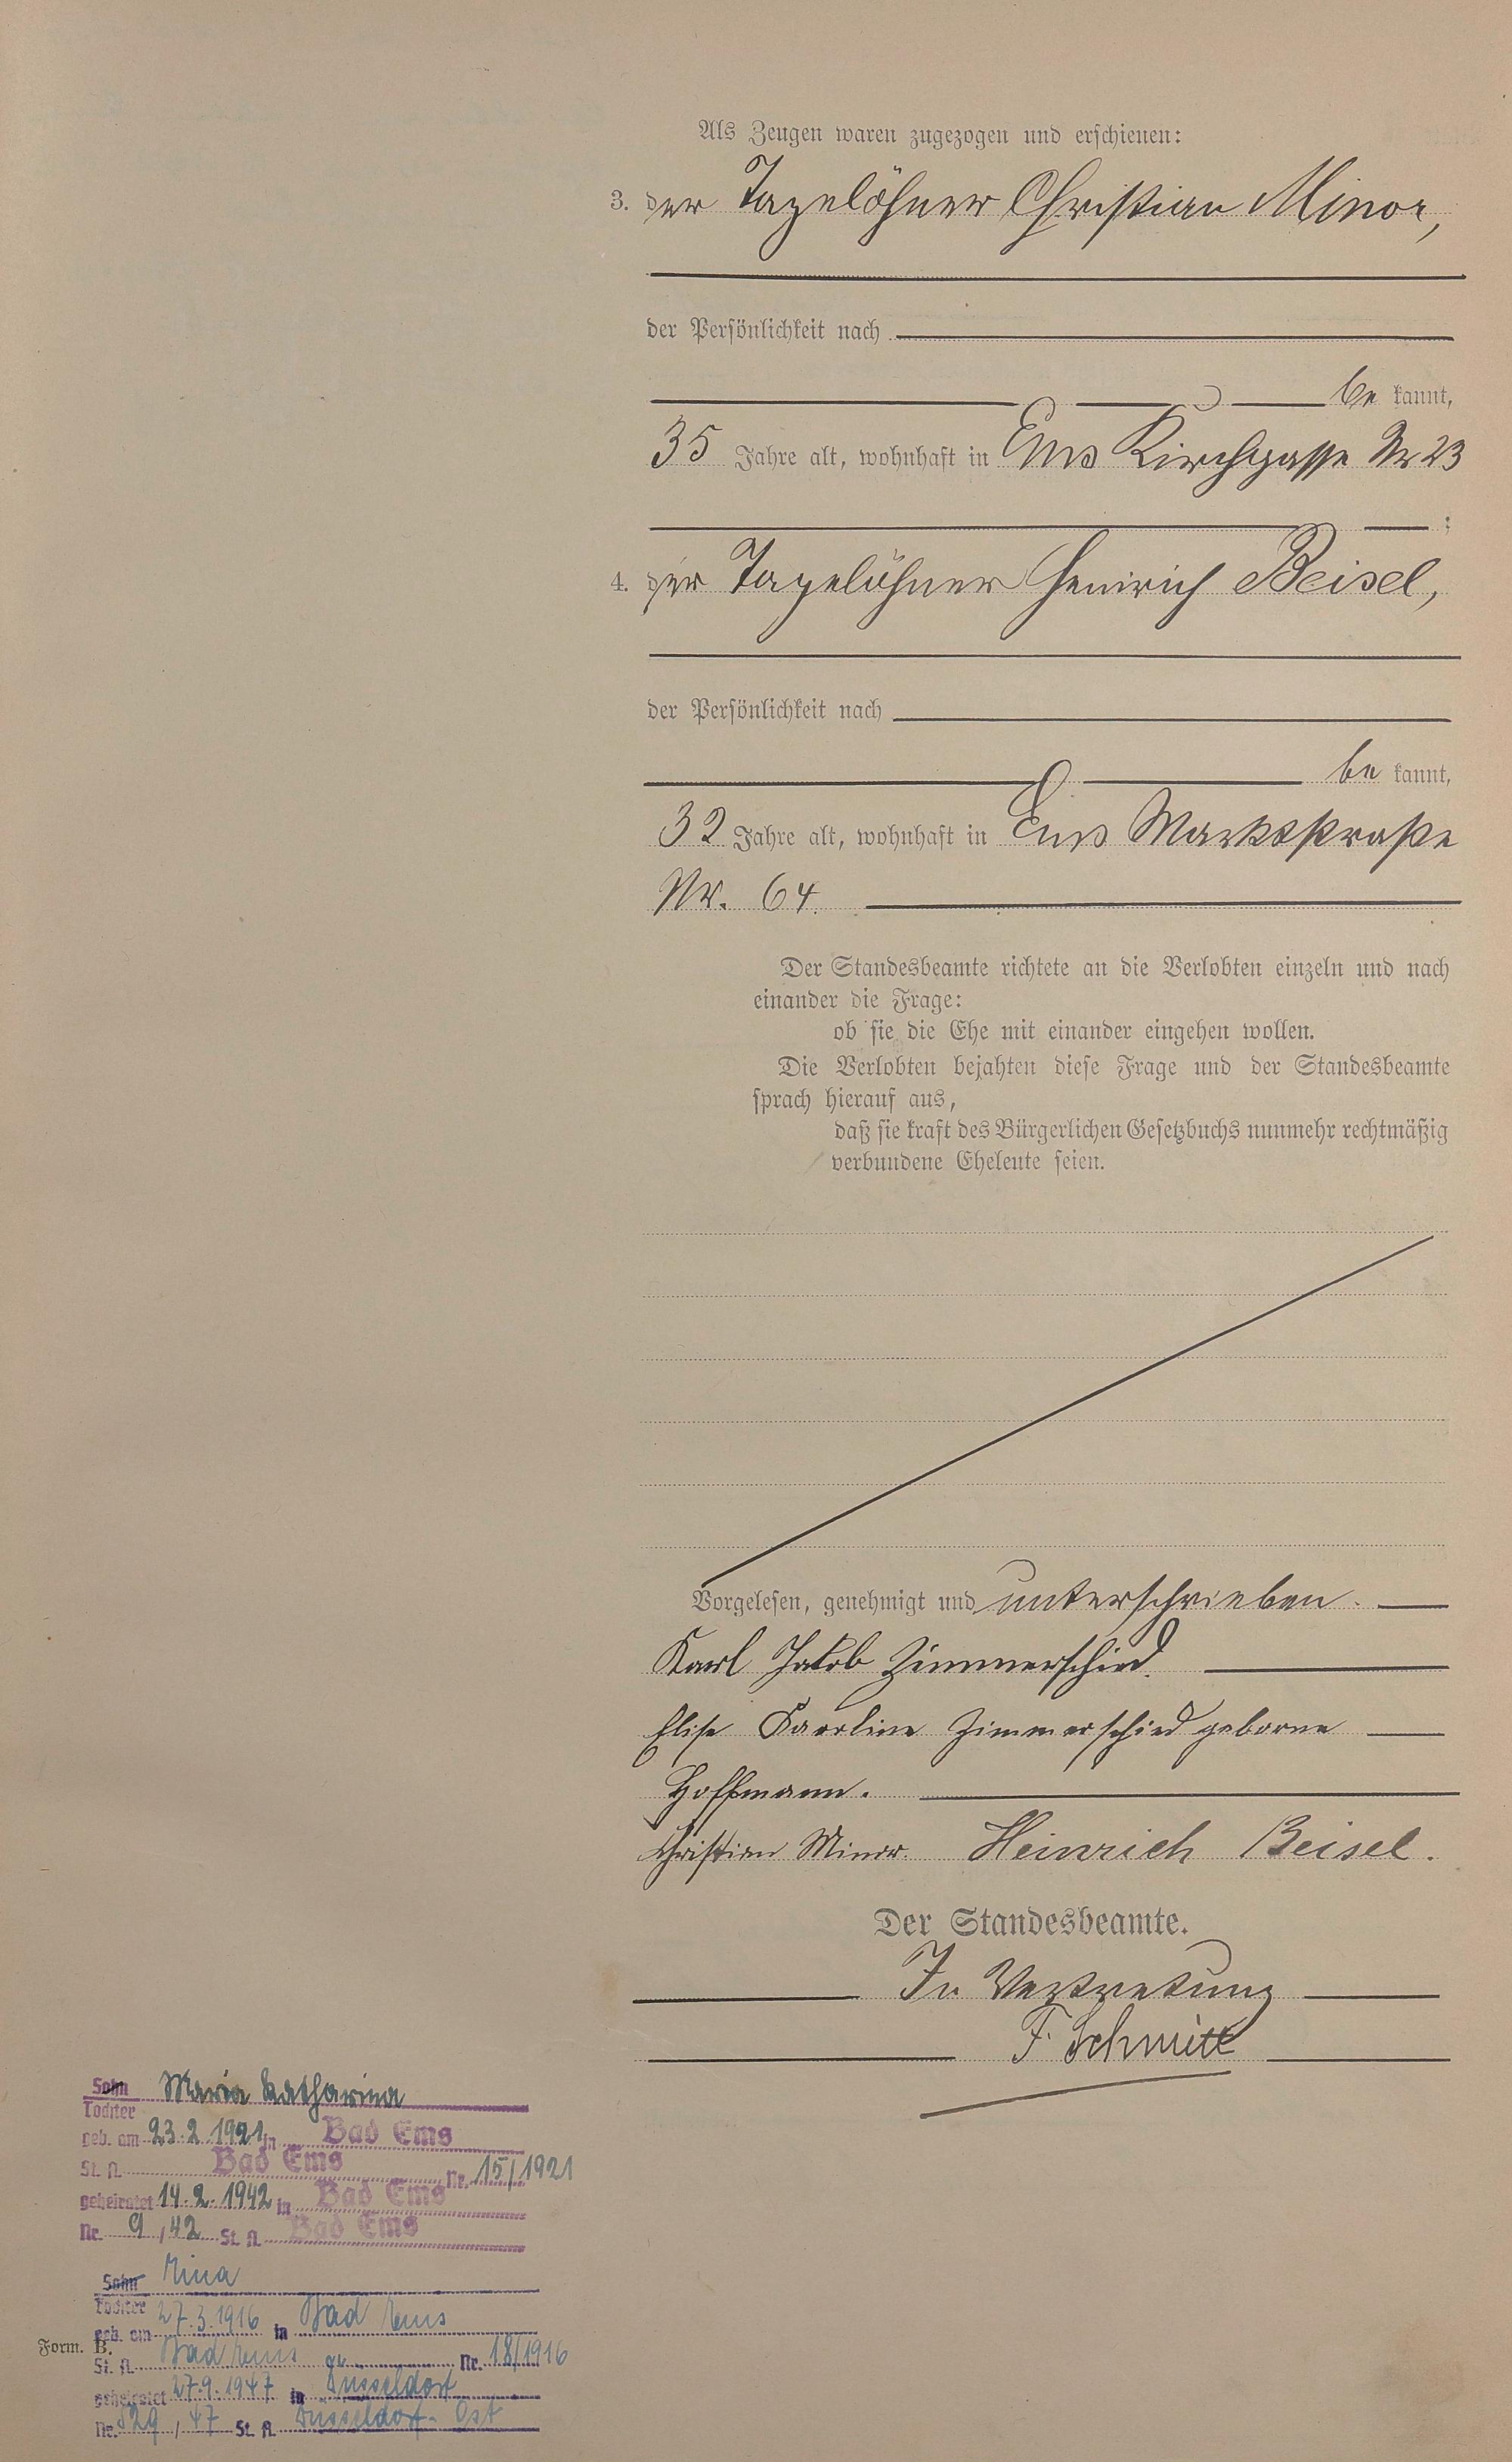 Als Zeugen waren zugezogen und erschienen:
3. der Tagelöhner Christian Minor,
der Persönlichkeit nach
be kannt,
35 Jahre alt, wohnhaft in Ems Kirchgasse Nr 23
;
4. der Tagelöhner Heinrich Beisel,
der Persönlichkeit nach
be kannt,
32 Jahre alt, wohnhaft in Ems Marktstraße
Nr. 64.
Der Standesbeamte richtete an die Verlobten einzeln und nach
einander die Frage:
ob sie die Ehe mit einander eingehen wollen.
Die Verlobten bejahten diese Frage und der Standesbeamte
sprach hierauf aus,
daß sie kraft des Bürgerlichen Gesetzbuchs nunmehr rechtmäßig
verbundene Eheleute seien.
Vorgelesen, genehmigt und unterschrieben.
Karl Jakob Zimmerschied.
Elise Karoline Zimmerschied geborne
Hoffmann.
Christian Minor. Heinrich Beisel.
Der Standesbeamte.
In Vertretung
F. Schmitt
Sohn Maria Katharina
Tochter
geb. am 23.2.1921 in Bad Ems
St. A. Bad Ems Nr. 15/1921
geheiratet 14.2.1942 in Bad Ems
Nr. 9/42 St. A. Bad Ems
Sohn Mina
Tochter
geb. am 27.3.1916 in Bad Ems
Form. B.
St. A. Bad Ems Nr. 18/1916
geheiratet 27.9.1947 in Düsseldorf
Nr. 529/47 St. A. Düsseldorf-Ost